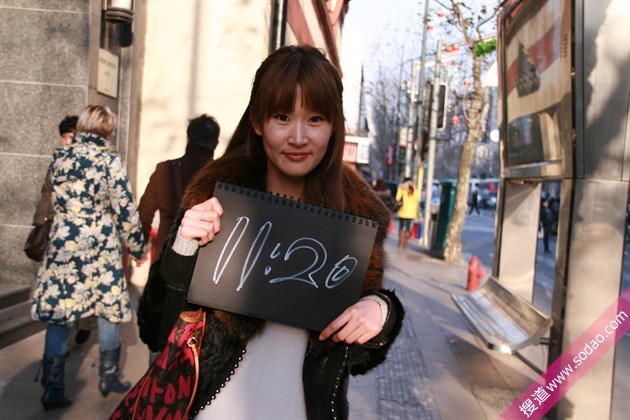 11:20
搜道www.sodao.com